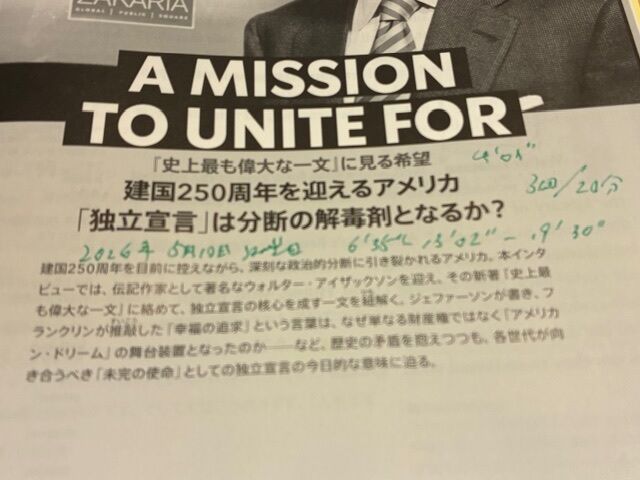 ZAKARIA
GLOBAL | PUBLIC | SQUARE
A MISSION
TO UNITE FOR
『史上最も偉大な一文』に見る希望
4'01"
建国250周年を迎えるアメリカ
3回/20分
「独立宣言」は分断の解毒剤となるか?
2026年 5月10日 日曜日 6'35" 13'02" – 19'30"
建国250周年を目前に控えながら、深刻な政治的分断に引き裂かれるアメリカ。本インタ
ビューでは、伝記作家として著名なウォルター・アイザックソンを迎え、その新著『史上最
も偉大な一文』に絡めて、独立宣言の核心を成す一文を紐解く。ジェファーソンが書き、フ
ランクリンが推敲した「幸福の追求」という言葉は、なぜ単なる財産権ではなく「アメリカ
ン・ドリーム」の舞台装置となったのか――など、歴史の矛盾を抱えつつも、各世代が向
き合うべき「未完の使命」としての独立宣言の今日的な意味に迫る。